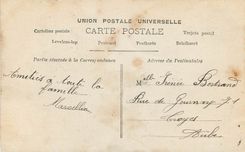 UNION POSTALE UNIVERSELLE
CARTE POSTALE
Cartolina postale
Trajeta postal
Levelezo-lap
Postcard
Postkarte
Briefkaart
Partie réservée à la Correspondance
Adresse du Destinataire
Amitiés à toute la
famille
Marcellin
Irénée Bertrand
Rue de Gournay 71
Troyes
Aube